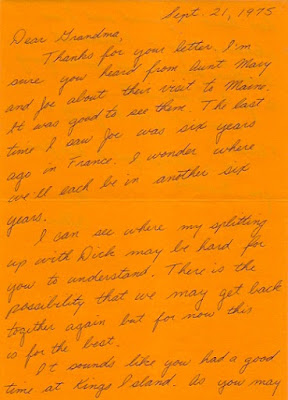 Sept. 21, 1975
Dear Grandma,
Thanks for your letter. I'm
sure you heard from Aunt Mary
and Joe about their visit to Maine.
It was good to see them. The last
time I saw Joe was six years
ago in France. I wonder where
we'll each be in another six
years.
I can see where my splitting
up with Dick may be hard for
you to understand. There is the
possibility that we may get back
together again but for now this
is for the best.
It sounds like you had a good
time at Kings Island. As you may